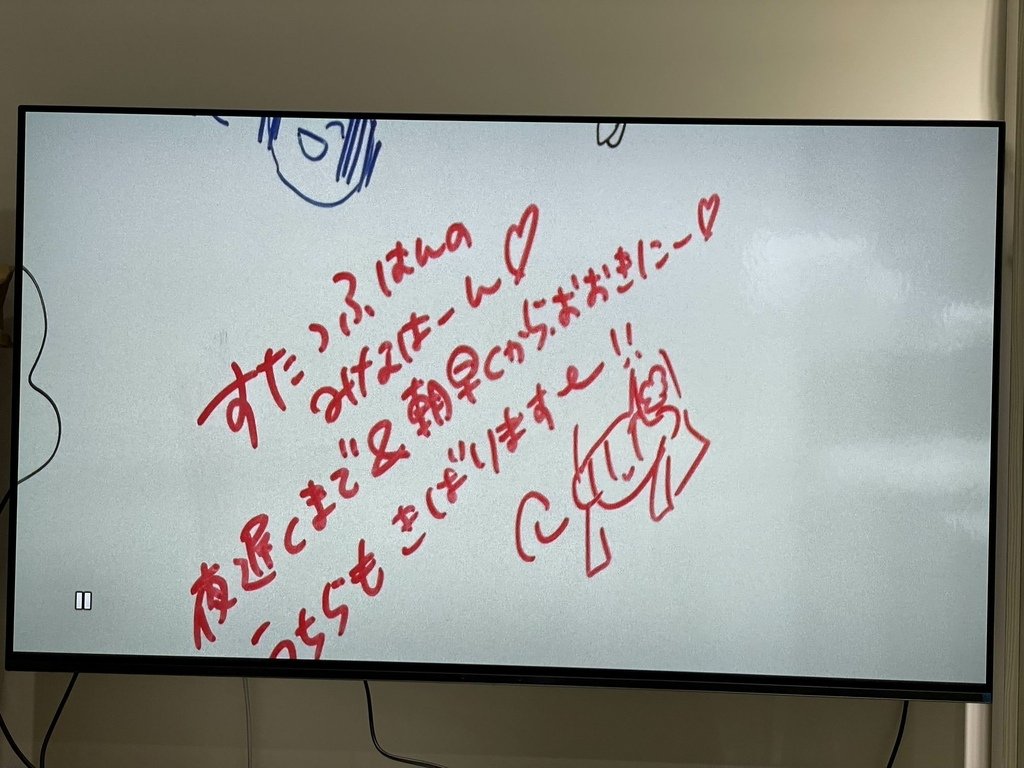 すたっふはんの
みなはーん♡
夜遅くまで&朝早くから、おおきにー♡
うちらもきばりますえ!!